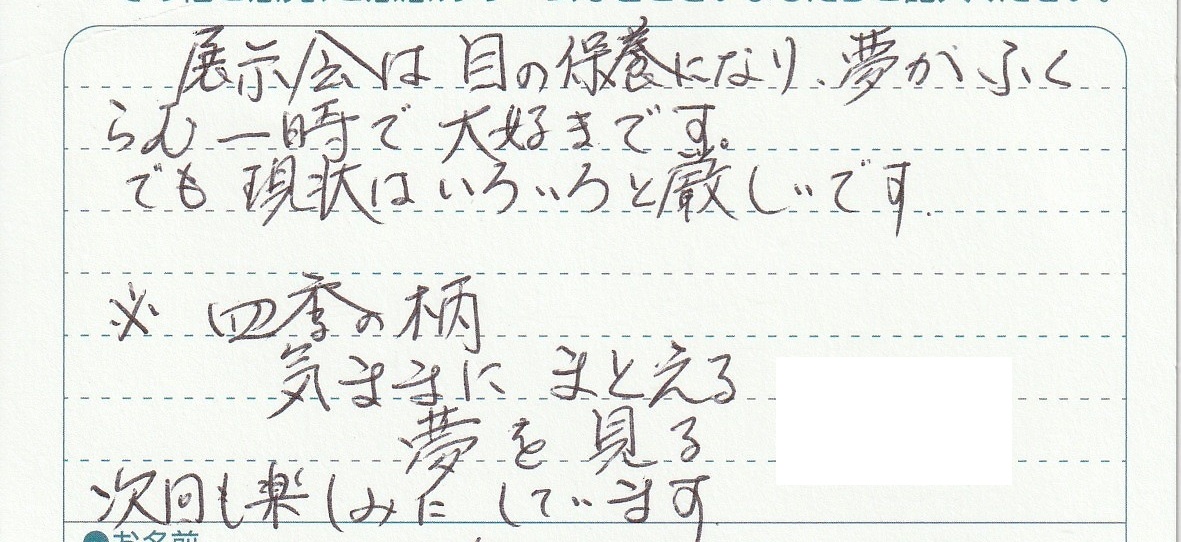 展示会は目の保養になり、夢がふく
らむ一時で大好きです。
でも現状はいろいろと厳しいです.
※ 四季の柄
気ままに まとえる
夢を見る
次回も楽しみにしています
●お名前